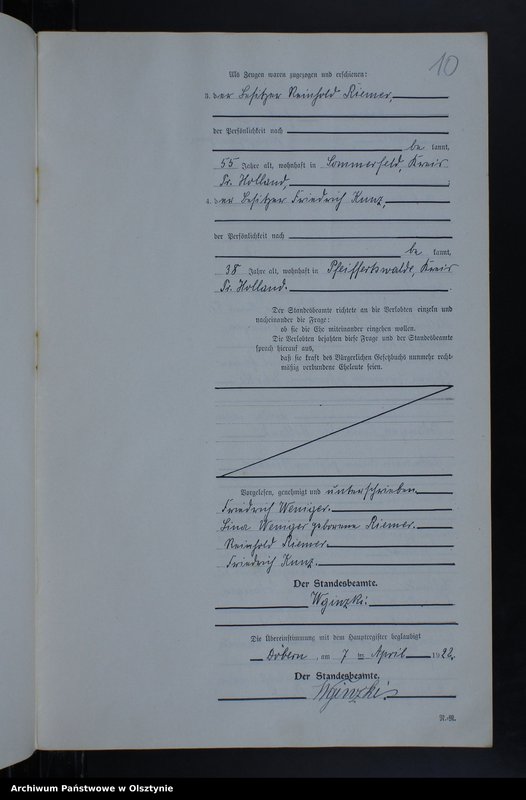 10
Als Zeugen waren zugezogen und erschienen:
3. der Besitzer Reinhold Riemer,
der Persönlichkeit nach
be kannt,
55 Jahre alt, wohnhaft in Sommerfeld, Kreis
Pr. Holland,
4. der Besitzer Friedrich Kunz,
der Persönlichkeit nach
be kannt,
38 Jahre alt, wohnhaft in Pfeiffertswalde, Kreis
Pr. Holland.
Der Standesbeamte richtete an die Verlobten einzeln und
nacheinander die Frage:
ob sie die Ehe miteinander eingehen wollen.
Die Verlobten bejahten diese Frage und der Standesbeamte
sprach hierauf aus,
daß sie kraft des Bürgerlichen Gesetzbuchs nunmehr recht-
mäßig verbundene Eheleute seien.
Vorgelesen, genehmigt und unterschrieben.
Friedrich Weniger.
Lina Weniger geborene Riemer.
Reinhold Riemer.
Friedrich Kunz.
Der Standesbeamte.
Wginzki.
Die Übereinstimmung mit dem Hauptregister beglaubigt
Döbern, am 7 ten April 1922.
Der Standesbeamte.
Wginzki.
N.-R.
Archiwum Państwowe w Olsztynie